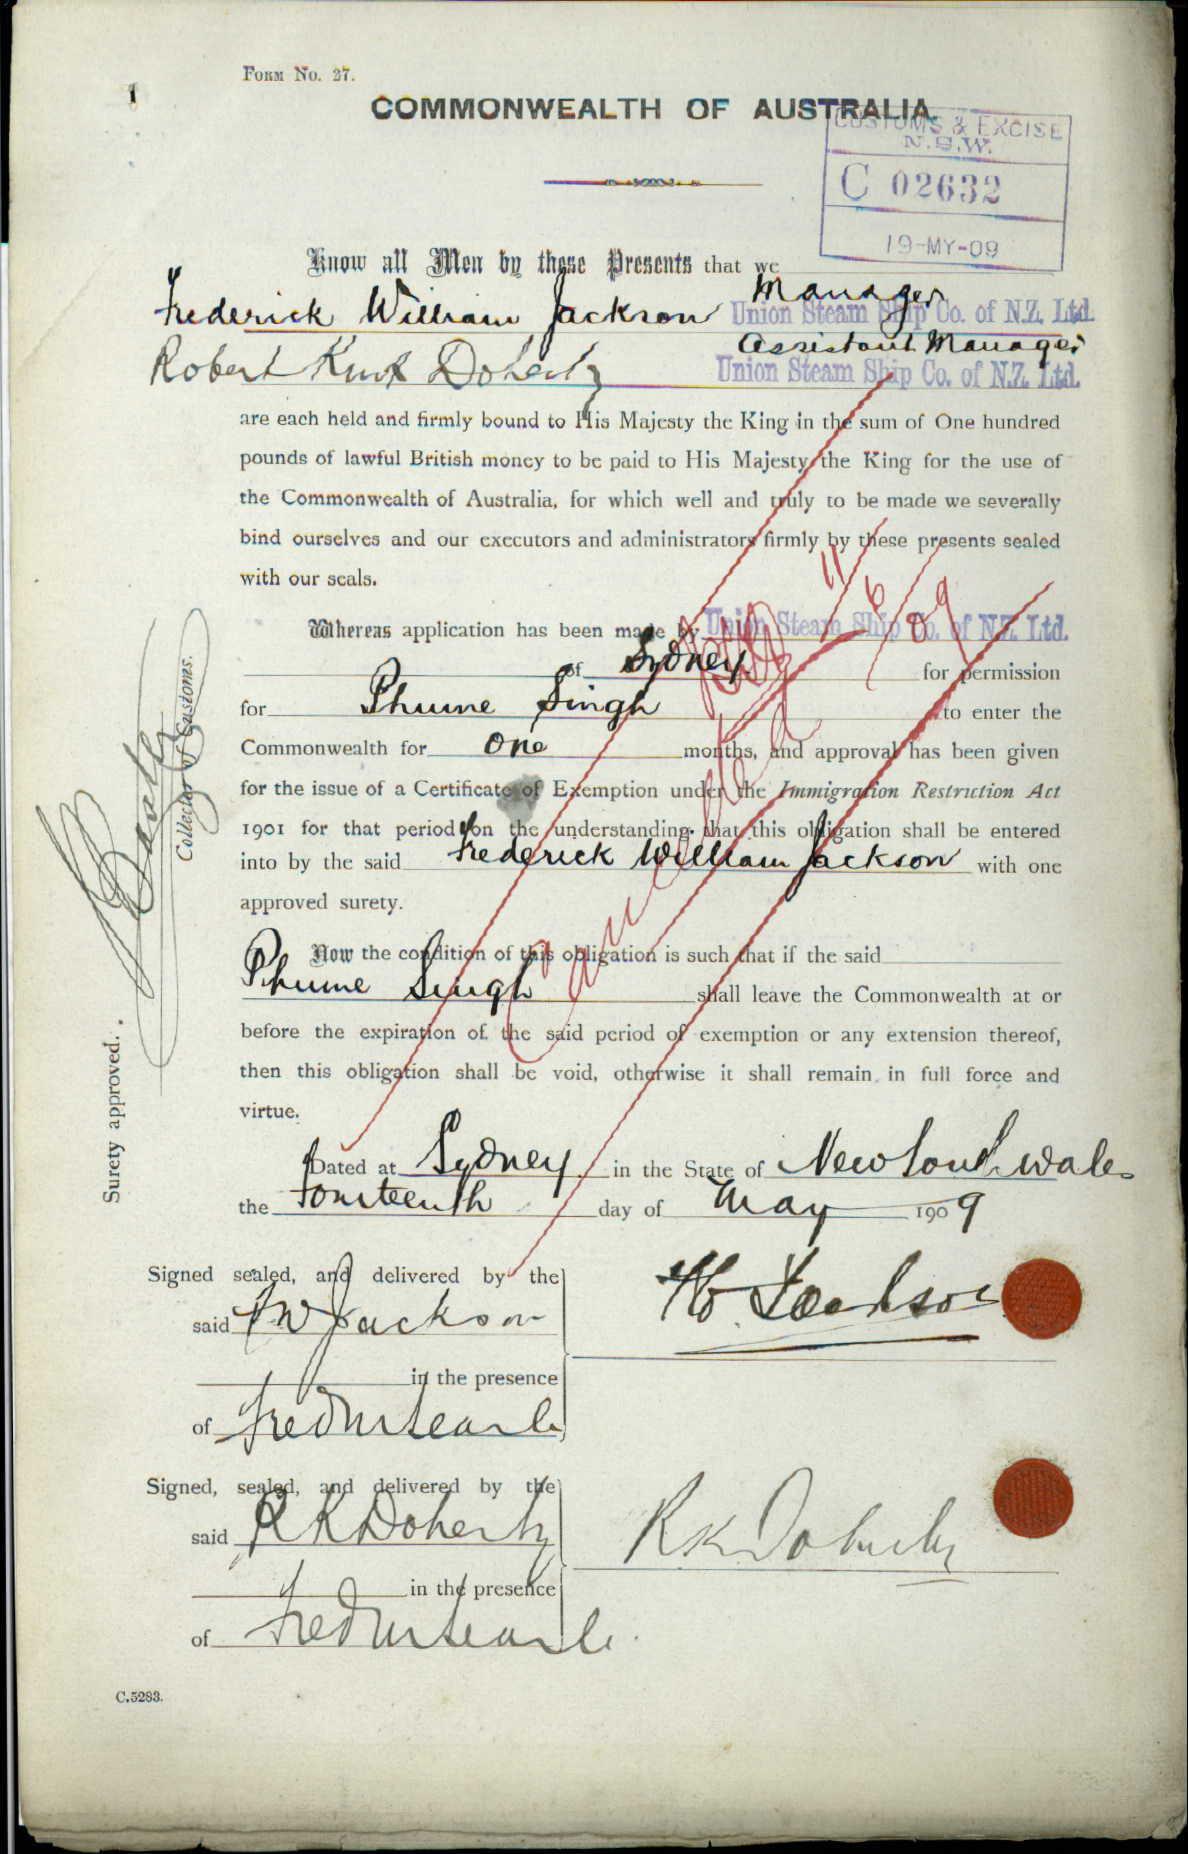 Form No. 27.
1
COMMONWEALTH OF AUSTRALIA.
CUSTOMS & EXCISE
N.S.W.
C 02632
19-MY-09
Know all Men by these Presents that we
Manager
Frederick William Jackson Union Steam Ship Co. of N.Z. Ltd.
Assistant Manager
Robert Doherty Union Steam Ship Co. of N.Z. Ltd.
are each held and firmly bound to His Majesty the King in the sum of One hundred
pounds of lawful British money to be paid to His Majesty the King for the use of
the Commonwealth of Australia, for which well and truly to be made we severally
bind ourselves and our executors and administrators firmly by these presents sealed
with our seals.
11/6/09
Whereas application has been made by Union Steam Ship Co. of N.Z. Ltd.
of Sydney for permission
for Phume Singh to enter the
Commonwealth for one months, and approval has been given
for the issue of a Certificate of Exemption under the Immigration Restriction Act
1901 for that period on the understanding that this obligation shall be entered
into by the said Frederick William Jackson with one
approved surety.
Cancelled
Now the condition of this obligation is such that if the said
Phume Singh shall leave the Commonwealth at or
before the expiration of the said period of exemption or any extension thereof,
then this obligation shall be void, otherwise it shall remain in full force and
virtue.
Surety approved.
Collector of Customs.
Dated at Sydney in the State of New South Wales
the fourteenth day of May 1909
Signed sealed, and delivered by the
said F W Jackson
in the presence
of
F W Jackson
Signed, sealed, and delivered by the
said R K Doherty
in the presence
of
R K Doherty
C.5283.